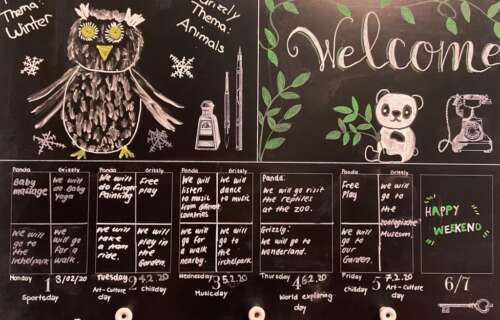 Panda
Thema:
Winter
Grizzly
Thema:
Animals
Welcome
Panda
Grizzly
Baby
massage
We will
do Baby
yoga
We will
go to
the
irchelpark
We will
go for a
walk.
Monday
1
3/02/20
Sportsday
Panda
Grizzly
We will
do finger
Painting
Free
play
We will
take a
tram
ride.
We will
play in
the
Garden.
Tuesday
2
4.2.20
Art-Culture
day
Chillday
Panda
Grizzly
We will
listen
to music
from different
countries
We will
dance
to music
We will
go for a
walk
nearby.
We will
go to
the
irchelpark
Wednesday
3
5.2.20
Musicday
Panda:
We will go visit
the reptiles
at the zoo.
Grizzly:
We will go to
wonderland.
Thursday
4
6.2.20
World exploring
day
Panda
Grizzly
Free
play
We will
go to
the
zoologische
Museum.
We will
go to
our
Garden.
Friday
5
7.2.20
Chillday
Art-Culture
day
HAPPY
WEEKEND
6/7